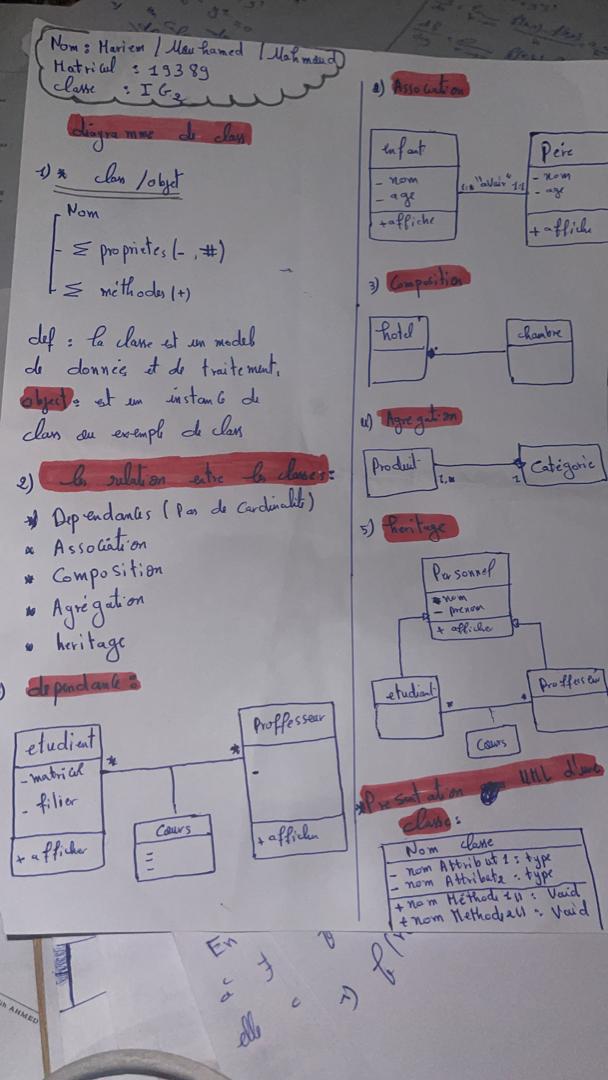 Nom : Mariem / Mouhamed / Mahmoud
Matricul : 19389
classe : IG2
diagramme de class
1) * class /objet
Nom
- Σ proprietes (- , #)
- Σ méthodes (+)
def : la classe est un model
de donnés et de traitement,
object : est un instance de
class ou exemple de class
2) les relation entre les classes :
* Dependances (Pas de Cardinalité)
* Association
* Composition
* Agrégation
* heritage
) dependance :
etudient
- matricul
- filier
+ afficher
*
*
Proffesseur
-
+ afficher
Cours
-
-
-
2) Association
enfant
- nom
- age
+ affiche
1:* "avoir" 1:1
Père
- nom
- age
+ affiche
3) Composition
hotel
chambre
4) Agregation
Produit
1,*
1
Catégorie
5) heritage
Personnel
* nom
- prenom
+ affiche
etudiant
*
*
Proffesseur
Cours
* Presentation UML d'une
classe :
Nom classe
- nom Attribut 1 : type
- nom Attribute 2 : type
+ nom Méthode 1() : Void
+ nom Methode 2() : Void
En
à
elle
OUH AHMED